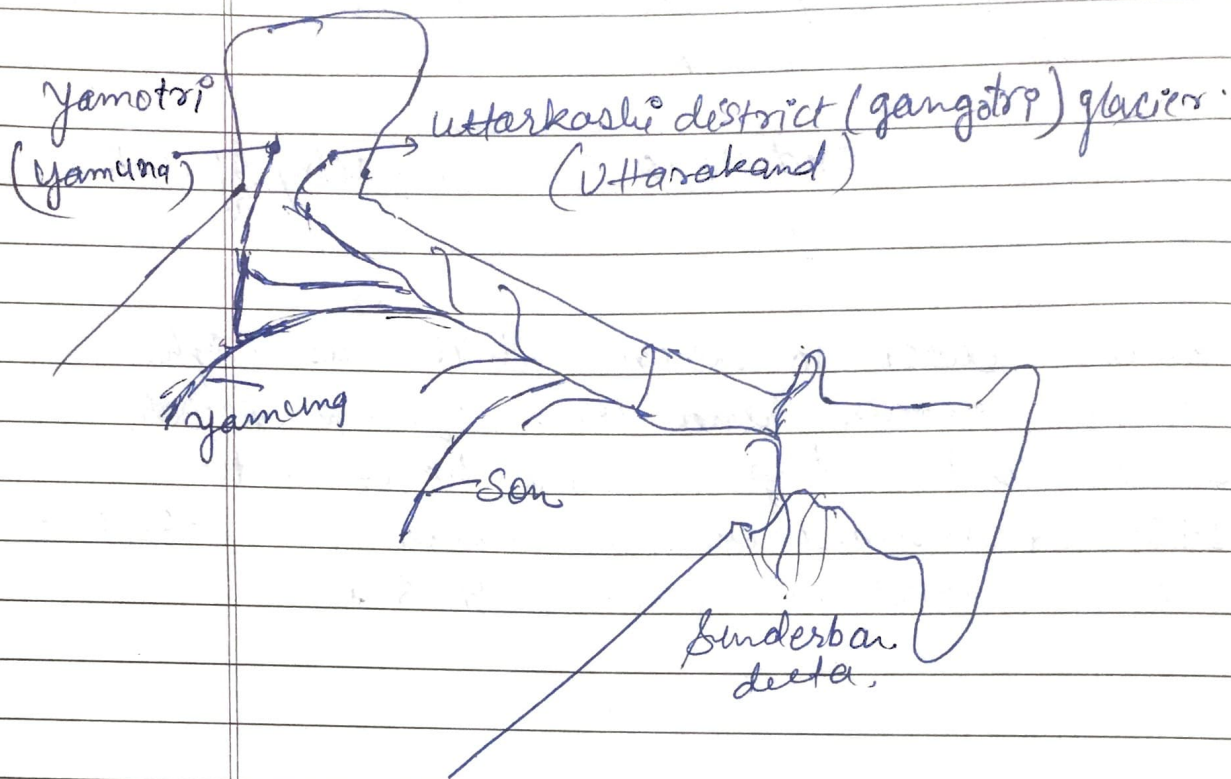 Yamotri
(Yamuna)
Uttarkashi district (gangotri) glacier.
(Uttarakand)
Yamuna
Son
Sunderban
delta.